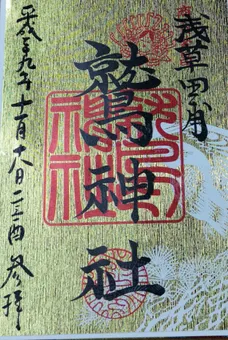 浅草田甫
鷲神社
平成二十九年十一月十八日二の酉参拝